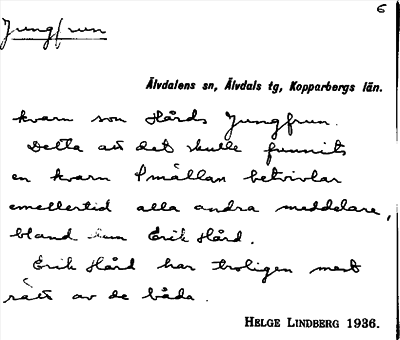 6
Jungfrun
Älvdalens sn, Älvdals tg, Kopparbergs län.
kvarn som Hårds Jungfrun.
Detta att det skulle funnits
en kvarn Smällan betvivlar
emellertid alla andra meddelare,
bland Erik Hård.
Erik Hård har troligen mest
rätt av de båda.
HELGE LINDBERG 1936.